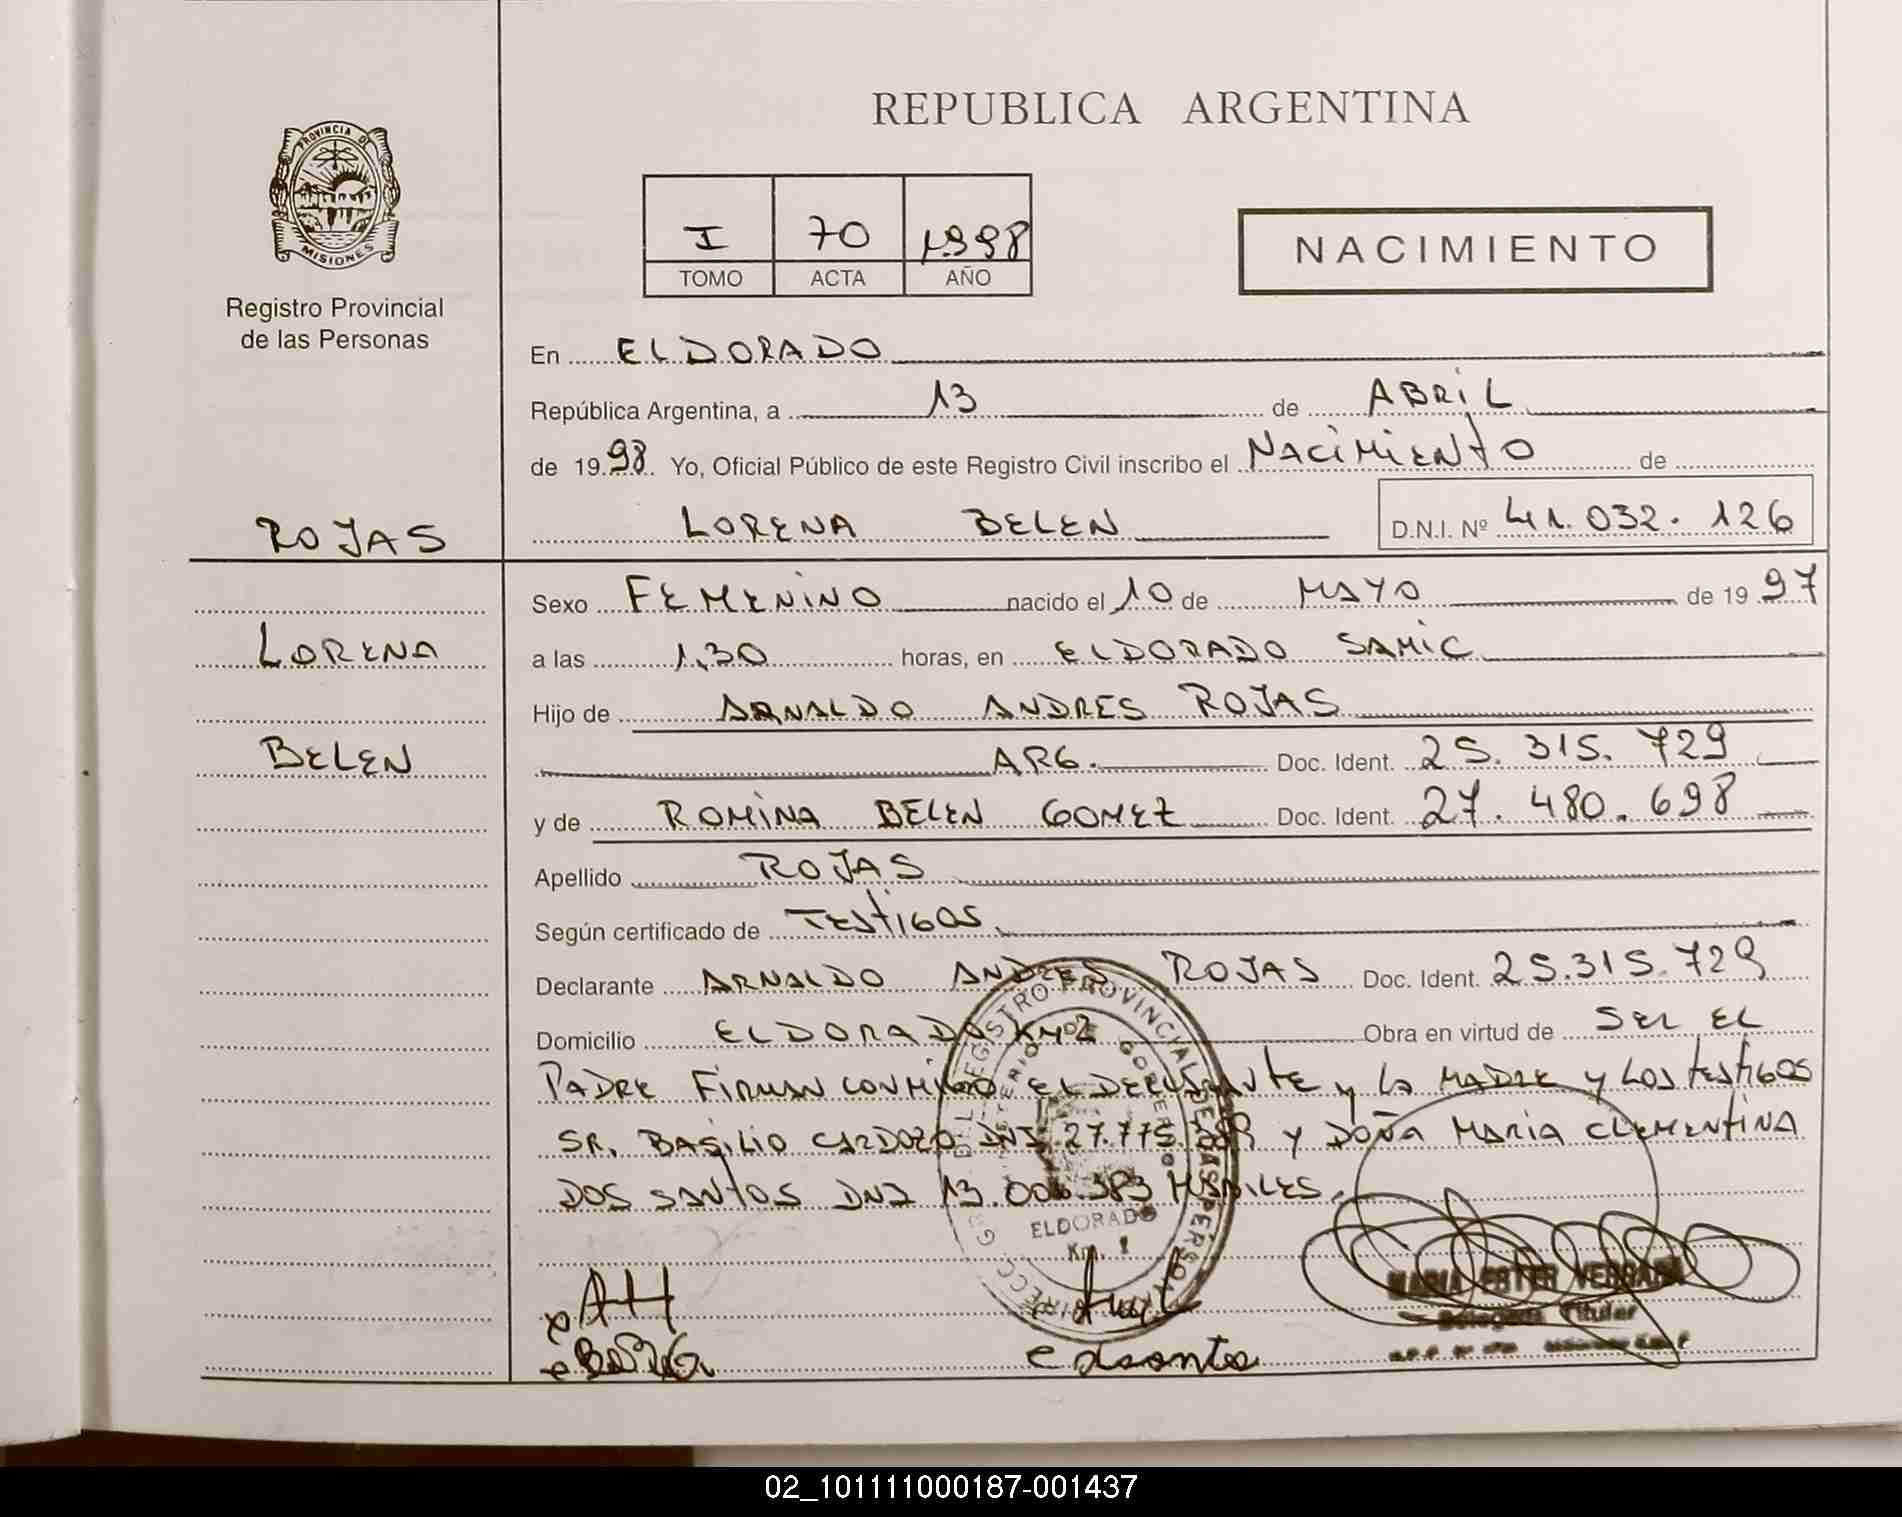 REPUBLICA ARGENTINA
PROVINCIA DE
MISIONES
Registro Provincial
de las Personas
I 70 1998
TOMO ACTA AÑO
NACIMIENTO
En ELDORADO
República Argentina, a 13 de ABRIL
de 1998 Yo, Oficial Público de este Registro Civil inscribo el NACIMIENTO de
ROJAS
LORENA BELEN D.N.I. Nº 41.032.126
Sexo FEMENINO nacido el 10 de MAYO de 1997
LORENA
a las 1,30 horas, en ELDORADO SAMIC
Hijo de ARNALDO ANDRES ROJAS
BELEN
ARG. Doc. Ident. 25.315.729
y de ROMINA BELEN GOMEZ Doc. Ident. 27.480.698
Apellido ROJAS
Según certificado de TESTIGOS
Declarante ARNALDO ANDRES ROJAS Doc. Ident. 25.315.729
Domicilio ELDORADO KM 2 Obra en virtud de SER EL
PADRE FIRMAN CONMIGO EL DECLARANTE y LA MADRE y LOS TESTIGOS
SR. BASILIO CARDOZO DNI 27.775. Y DOÑA MARIA CLEMENTINA
DOS SANTOS DNI 13.006.383 HABILES.
ELDORADO
MARIA ESTER
Titular
02_101111000187-001437